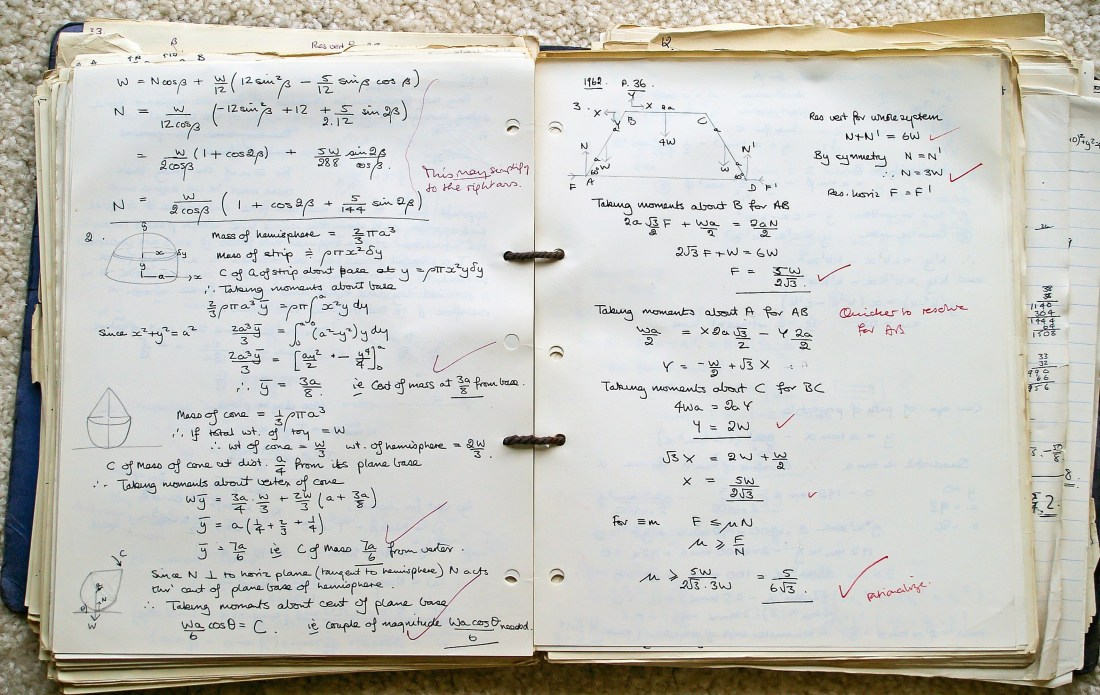 33
Res vert
W = Ncosβ + W/12 (12 sin²β − 5/12 sinβ cos β)
N = W/12cosβ (−12 sin²β + 12 + 5/2.12 sin 2β)
= W/2cosβ (1 + cos2β) + 5W/288 sin2β/cosβ
This may simplify
to the right ans.
N = W/2cosβ (1 + cos2β + 5/144 sin 2β)
2.
Mass of hemisphere = 2/3 πa³
Mass of strip ≑ ρπx²δy
C of G of strip about base at y = ρπx²yδy
∴ Taking moments about base
2/3 ρπa³ȳ = ρπ∫ᵃ x²y dy
since x²+y²=a² 2a³ȳ/3 = ∫₀ᵃ (a²−y²) y dy
2a³ȳ/3 = [ay²/2 − y⁴/4]₀ᵃ
∴ ȳ = 3a/8. ie Cent of mass at 3a/8 from base.
Mass of cone = 1/3 ρπa³
∴ If total wt. of toy = W
∴ wt of cone = W/3 wt. of hemisphere = 2W/3.
C of Mass of cone at dist. a/4 from its plane base
∴ Taking moments about vertex of cone
Wȳ = 3a/4 . W/3 + 2W/3 (a + 3a/8)
ȳ = a(1/4 + 2/3 + 1/4)
ȳ = 7a/6 ie C of Mass 7a/6 from vertex.
Since N ⊥ to horiz plane (tangent to hemisphere) N acts
thro' cent of plane base of hemisphere.
∴ Taking moments about cent of plane base
Wa/6 cosθ = C. ie couple of magnitude Wa cosθ/6 needed.
12
1962. P. 36.
3.
Y
X X 2a
B C
4W
N N'
W W
F A D F'
60° 60°
Res vert for whole system
N+N' = 6W
By symmetry N = N'
∴ N = 3W
Res. horiz F = F'
Taking moments about B for AB
2a√3/2 F + Wa/2 = 2aN/2
2√3 F + W = 6W
F = 5W/2√3.
Taking moments about A for AB
Quicker to resolve
for AB
Wa/2 = X 2a√3/2 − Y 2a/2
Y = −W/2 + √3 X
Taking moments about C for BC
4Wa = 2aY
Y = 2W
√3 X = 2W + W/2
X = 5W/2√3
for ≡m F ≤ μN
μ ≥ F/N
μ ≥ 5W/2√3.3W = 5/6√3.
rationalize.